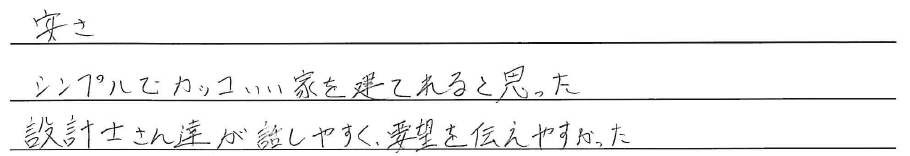 安さ
シンプルでカッコいい家を建てれると思った
設計士さん達が話しやすく、要望を伝えやすかった